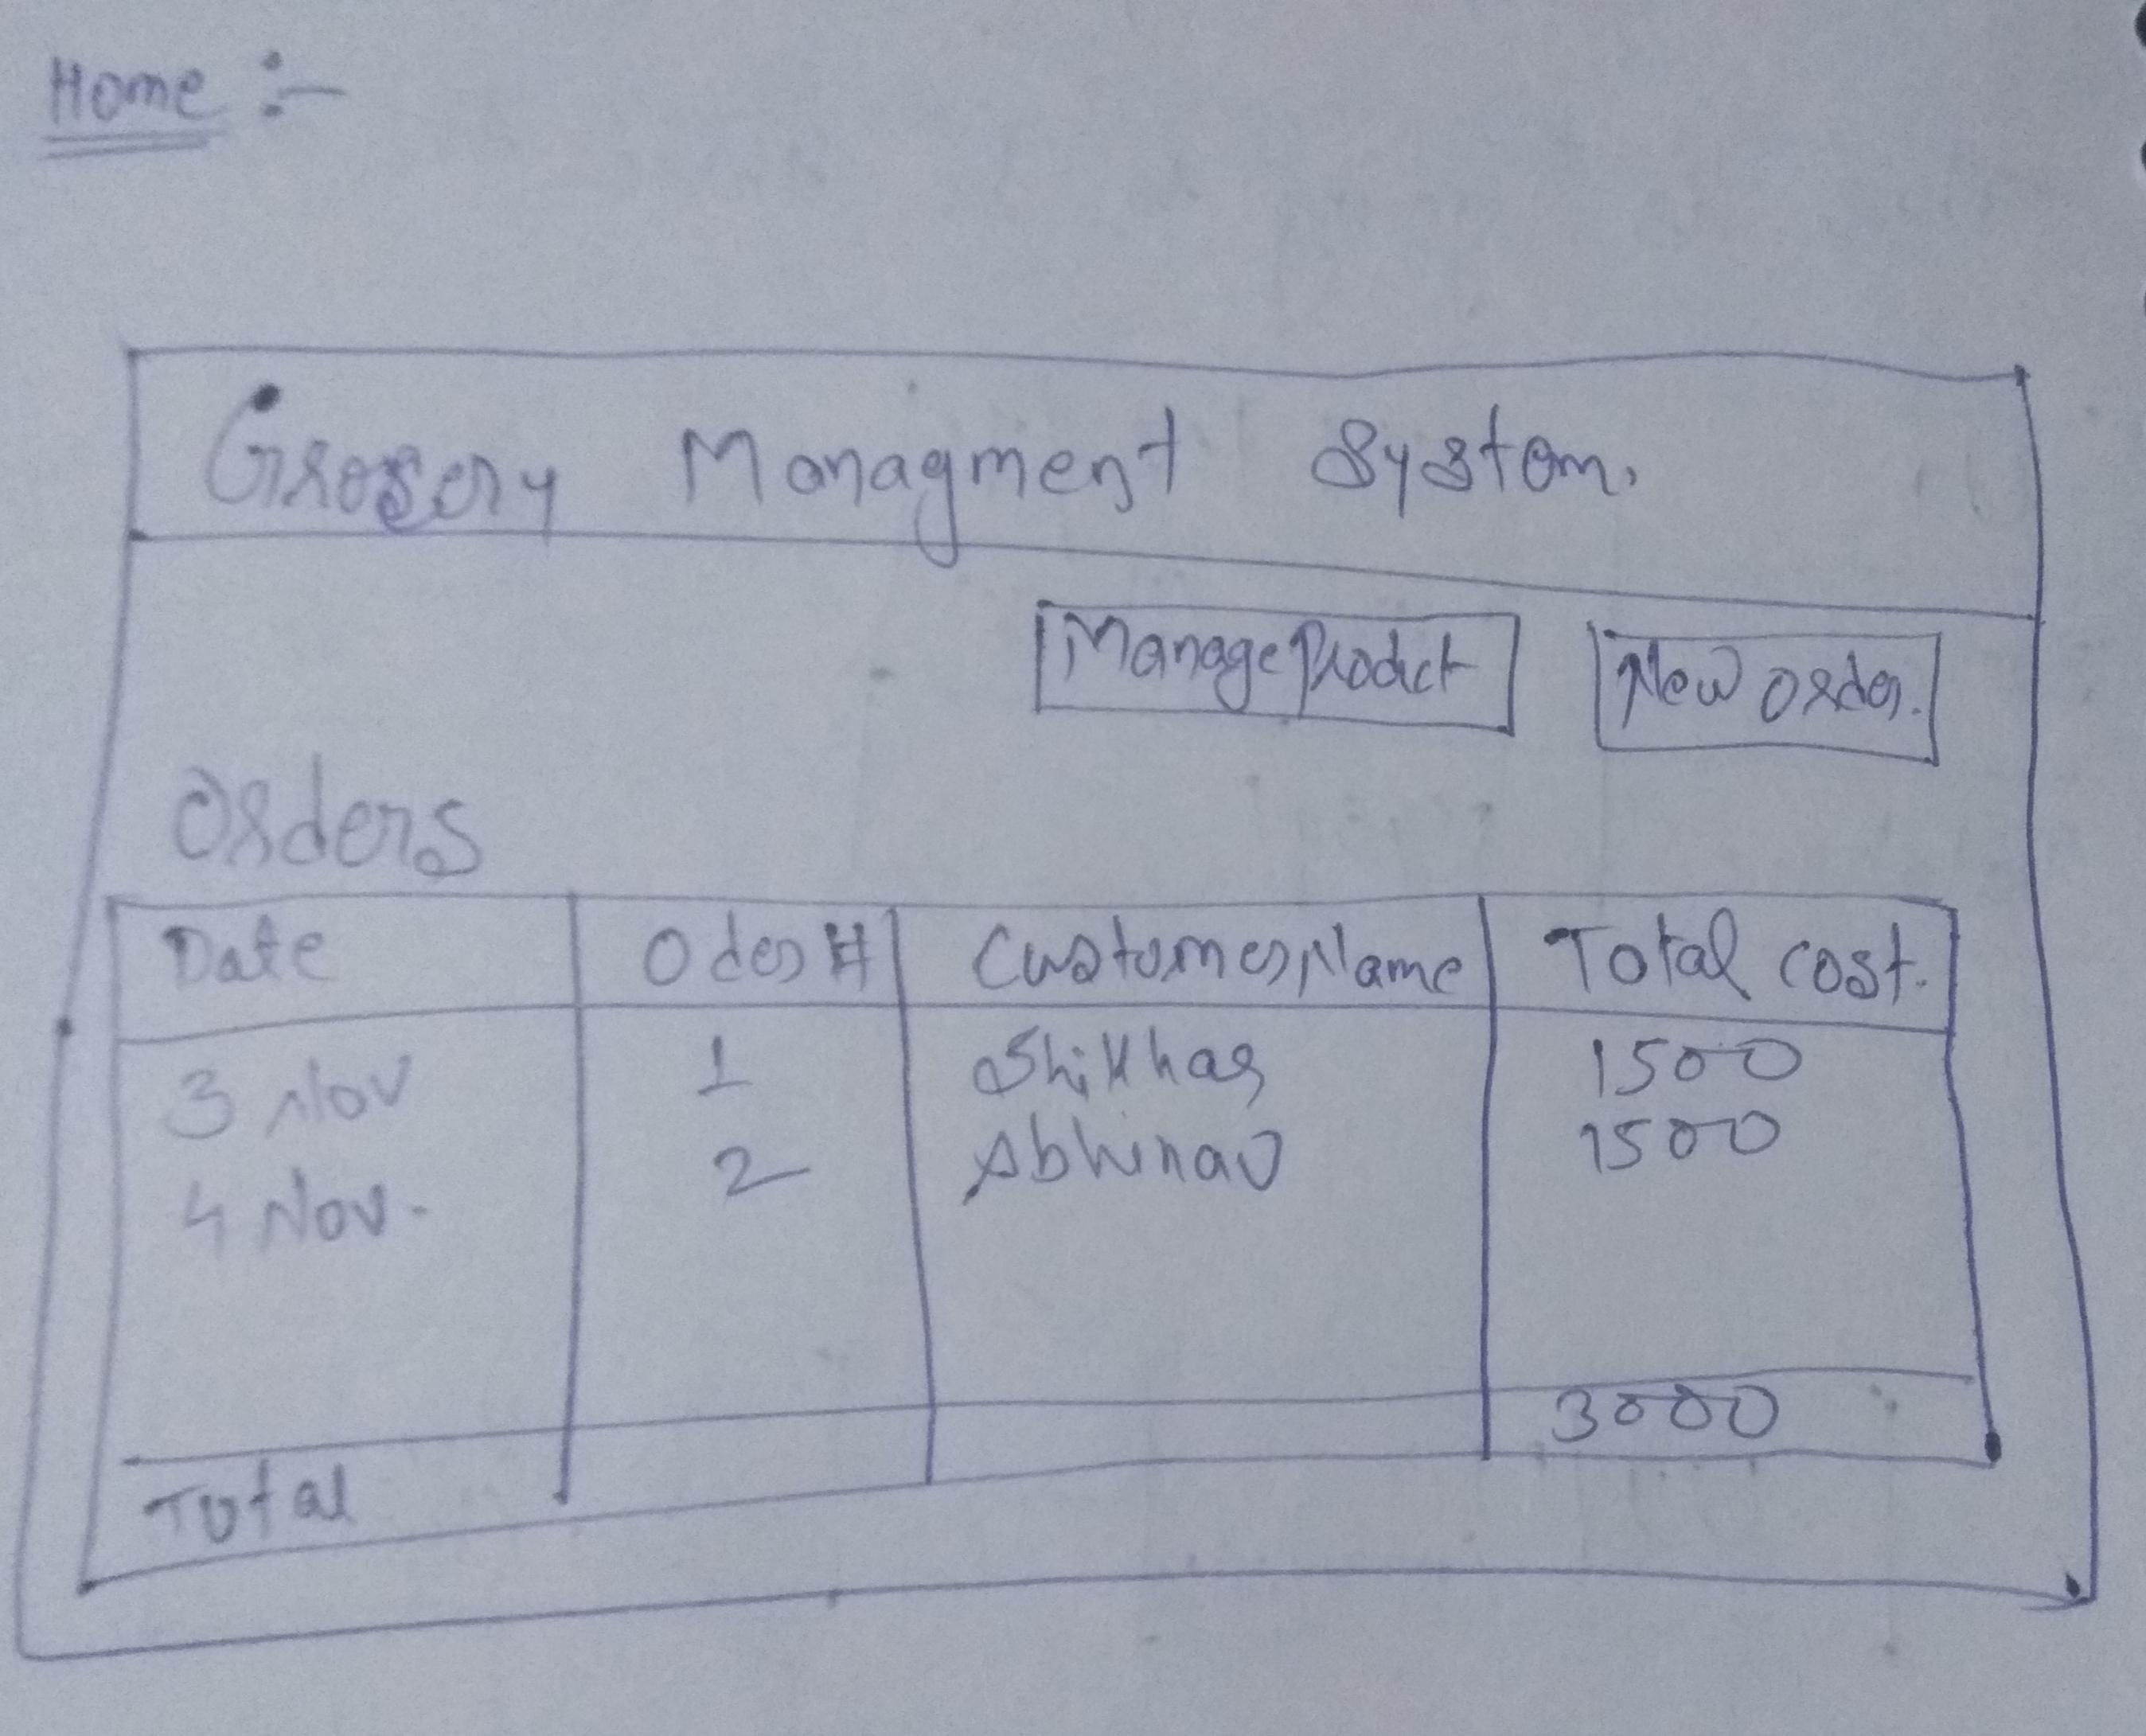 Home :-
Grosery Managment System.
Manage Product New order.
Orders
Date Oder # Customer Name Total cost.
3 Nov 1 Shikhar 1500
4 Nov. 2 Abhinav 1500
Total 3000